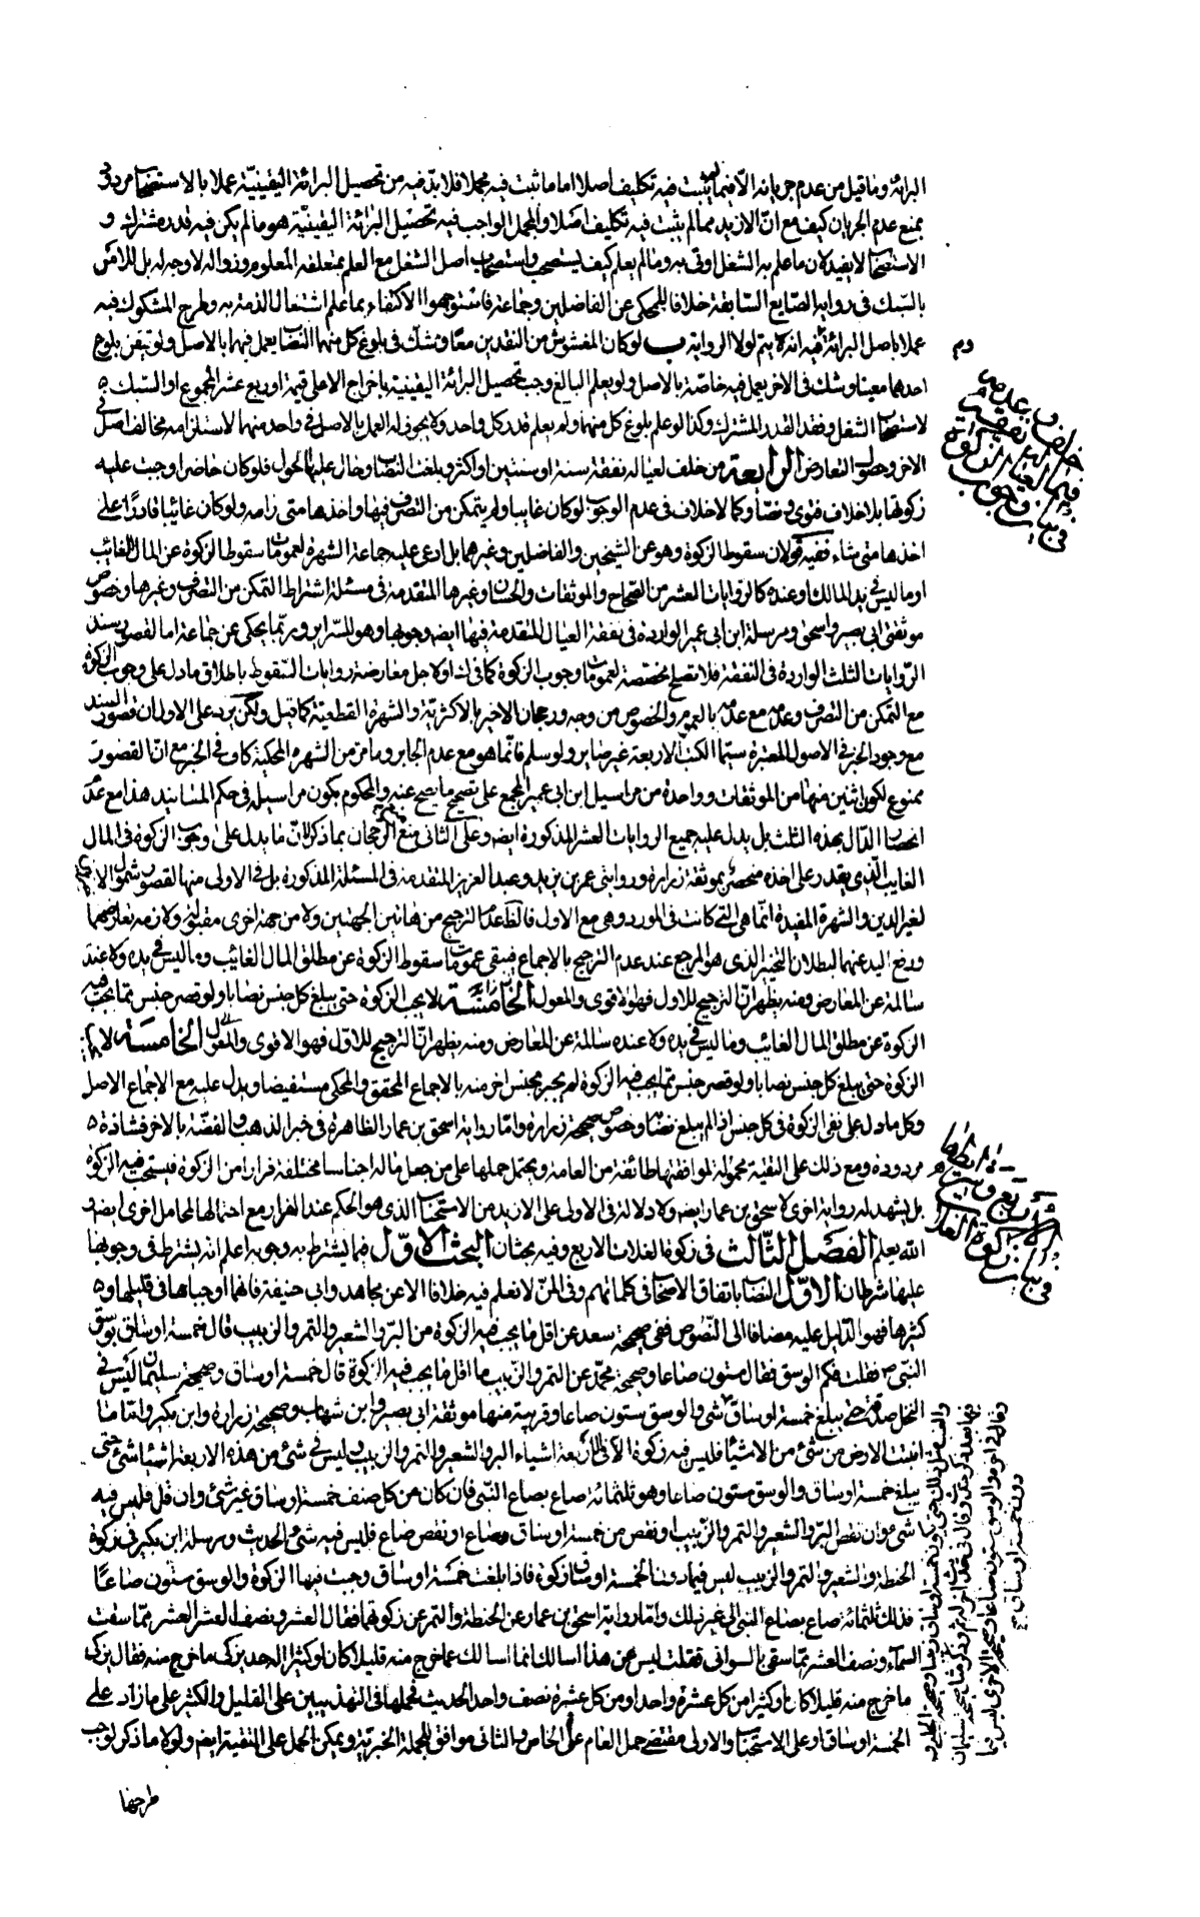 البرائة وما قيل من عدم جريانه الا فيما لم يثبت فيه تكليف اصلا اما ما ثبت فيه مجملا فلا بد فيه من تحصيل البرائة اليقينيّة عملا بالاستصحاب مردود
بمنع عدم الجريان كيف مع انّ الازيد مما لم يثبت فيه تكليف اصلا والمجمل الواجب فيه تحصيل البرائة اليقينيّة هو ما لم يكن فيه قدر مشترك و
الاستصحاب لا يفيد لان ما علم به الشغل اوتى به وما لم يعلم كيف يستصحب واستصحاب اصل الشغل مع العلم بمتعلقه المعلوم وزواله لا وجه له بل للامر
بالسّبك فى رواية الصّايغ السّابقة خلافا للمحكى عن الفاضلين وجماعة فاستوجهوا الاكتفاء بما علم اشتغال الذمة به وطرح المشكوك فيه
عملا باصل البرائة وفيه انه لا يتم لولا الرواية ب لو كان المغشوش من النقدين معا وشك فى بلوغ كل منهما النصاب يعمل فيهما بالاصل ولو تيقن بلوغ
احدهما معينا وشك فى الاخر يعمل فيه خاصّة بالاصل ولو يعلم البالغ وجب تحصيل البرائة اليقينية باخراج الاعلى قيمة او ربع عشر المجموع او السّبك
لاستصحاب الشغل وفقد القدر المشترك وكذا لو علم بلوغ كل منهما ولم يعلم قدر كل واحد ولا يجوز له العمل بالاصل فى واحد منهما لاستلزامه مخالف اصل
الاخر وحصول التعارض الرابعة من خلف لعياله نفقة سنة او سنتين او اكثر وبلغت النصاب وحال عليها الحول فلو كان حاضرا وجبت عليه
زكوتها بلا خلاف فتوى ونصا وكما لا خلاف فى عدم الوجوب لو كان غايبا ولم يتمكن من التصرف فيها واخذها متى رامه ولو كان غائبا قادرا على
اخذها متى شاء ففيه قولان سقوط الزكوة وهو عن الشيخين والفاضلين وغيرهما بل ادعى عليه جماعة الشهرة لعمومات سقوط الزكوة عن المال الغائب
او ما ليس فى يد المالك او عنده كالروايات العشر من الصحاح والموثقات والحسان وغيرها المتقدمة فى مسئلة اشتراط التمكن من التصرف وغيرها وخصوص
موثقتى ابى بصير واسحق ومرسلة ابن ابى عمير الواردة فى نفقة العيال المتقدمة فيها ايضا ووجوبها وهو للسّراير وربّما يحكى عن جماعة اما لقصور سند
الرّوايات الثلث الواردة فى النفقة فلا تصلح مخصصة لعمومات وجوب الزكوة كما فى ك او لاجل معارضة روايات السّقوط باطلاق ما دل على وجوب الزكوة
مع التمكن من التصرف وعدمه مع عدمه بالعموم والخصوص من وجه ورجحان الاخير بالاكثرية والشهرة القطعية كما قيل ولكن يرد على الاول ان قصور السند
مع وجود الخبر فى الاصول المعتبرة سيّما الكتب الاربعة غير ضاير ولو سلم فانّما هو مع عدم الجابر وما مرّ من الشهرة المحكية كاف فى الجبر مع انّ القصور
ممنوع لكون اثنين منها من الموثقات وواحدة من مراسيل ابن ابى عمير المجمع على تصحيح ما يصح عنه والمحكوم بكون مراسيله فى حكم المسانيد هذا مع عدم
انحصار الدّال بهذه الثلث بل يدل عليه جميع الروايات العشر المذكورة ايضا وعلى الثانى منع الرجحان بما ذكر لان ما يدل على وجوب الزكوة فى المال
الغايب الّذى يقدر على اخذه منحصر بموثقة زرارة وروايتى عمر بن يزيد وعبد العزيز المتقدمة فى المسئلة المذكورة بل فى الاولى منها لقصور شمول الاخيرين
لغير الدين والشهرة المفيدة انّما هى التى كانت فى المورد وهى مع الاول فالظ عدم الترجيح من هاتين الجهتين ولا من جهة اخرى مقبلة ولازمه تعارضهما
ورفع اليد عنهما لبطلان التخيير الذى هو المرجع عند عدم الترجيح بالاجماع فيبقى عمومات سقوط الزكوة عن مطلق المال الغائب وما ليس فى يده ولا عنده
سالمة عن المعارض ومنه يظهر انّ الترجيح للاول فهو الاقوى والمعول الخامسة لا يجب الزكوة حتى يبلغ كل جنس نصابا ولو قصر جنس ممّا يجب فيه
الزكوة عن مطلق المال الغائب وما ليس فى يده ولا عنده سالمة عن المعارض ومنه يظهر انّ الترجيح للاوّل فهو الاقوى والمعول الخامسة لا يجب
الزكوة حتى يبلغ كل جنس نصابا ولو قصر جنس ممّا يجب فيه الزكوة لم يجبر بجنس اخر منه بالاجماع المحقق والمحكى مستفيضا ويدل عليه مع الاجماع الاصل
وكل ما دل على نفى الزكوة فى كل جنس اذا لم يبلغ نصابا وخصوص صحيحة زرارة وامّا رواية اسحق بن عمار الظاهرة فى خبر الذهب والفضّة بالاخر فشاذة
مردودة ومع ذلك على التقية محمولة لموافقتها طائفة من العامة ويحتمل حملها على من جعل ماله اجناسا مختلفة فرارا من الزكوة فيستحب فيه الزكوة
بل يشهد له رواية اخرى لاسحق بن عمار ايضا ولا دلالة فى الاولى على الازيد من الاستحباب الذى هو الحكم عند الفرار مع احتمالها لمحامل اخرى ايضا و
الله يعلم الفصل الثّالث فى زكوة الغلات الاربع وفيه بحثان البحث الاوّل فيما يشترط به وجوبه اعلم انّه يشترط فى وجوبها
عليها شرطان الاوّل النصاب باتفاق الاصحاب فى كلماتهم وفى المن لا نعلم فيه خلافا الا عن مجاهد وابى حنيفة فانهما اوجباها فى قليلها و
كثيرها فهو الدّليل عليه مضافا الى النّصوص ففى صحيحة سعد عن اقل ما يجب فيه الزكوة من البرّ والشعير والتمر والزبيب قال خمسة اوساق بوسق
النبّى ص فقلت فكم الوسق فقال ستون صاعا وصحيحة محمّد عن التمر والزّبيب ما اقل ما يجب فيه الزكوة قال خمسة اوساق وصحيحة سليمان ليس فى
النخل صدقة حتى يبلغ خمسة اوساق شىء والوسق ستون صاعا وقريبة منها موثقة ابى بصير وابن شهاب وصحيحة زرارة وابن بكير وامّا ما
انبتت الارض من شىء من الاشياء فليس فيه زكوة الا فى اربعة اشياء البر والشعير والتمر والزبيب وليس فى شىء من هذه الاربعة اشياء شىء حتى
يبلغ خمسة اوساق والوسق ستون صاعا وهو ثلثمائة صاع بصاع النبّى فان كان من كل صنف خمسة اوساق غير شىء وان قل فليس فيه
شىء وان نقص البرّ والشعير والتمر والزّبيب او نقص من خمسة اوساق وصاع او نقص صاع فليس فيه شىء الحديث ومرسلة ابن بكير فى زكوة
الحنطة والشعير والتمر والزبيب ليس فيما دون الخمسة اوساق زكوة فاذا بلغت خمسة اوساق وجبت فيها الزكوة والوسق ستون صاعا
فذلك ثلثمائة صاع بصاع النبى الى غير ذلك وامّا رواية اسحق بن عمار عن الحنطة والتمر عن زكوتهما فقال العشر ونصف العشر العشر ممّا سقت
السّماء ونصف العشر ممّا سقى بالسوانى فقلت ليس عن هذا اسالك انما اسالك عما خرج منه قليلا كان او كثيرا اله حد يزكى ما خرج منه فقال يزكى
ما خرج منه قليلا كان او كثيرا من كل عشرة واحد ومن كل عشرة نصف واحد الحديث فحملها فى التهذيبين على القليل والكثير على ما زاد على
الخمسة اوساق او على الاستحباب والاولى مقتضى حمل العام على الخاص والثانى موافق للجملة الخبرية ويمكن الحمل على التقية ايضا ولولا ما ذكر لوجب
طرحها